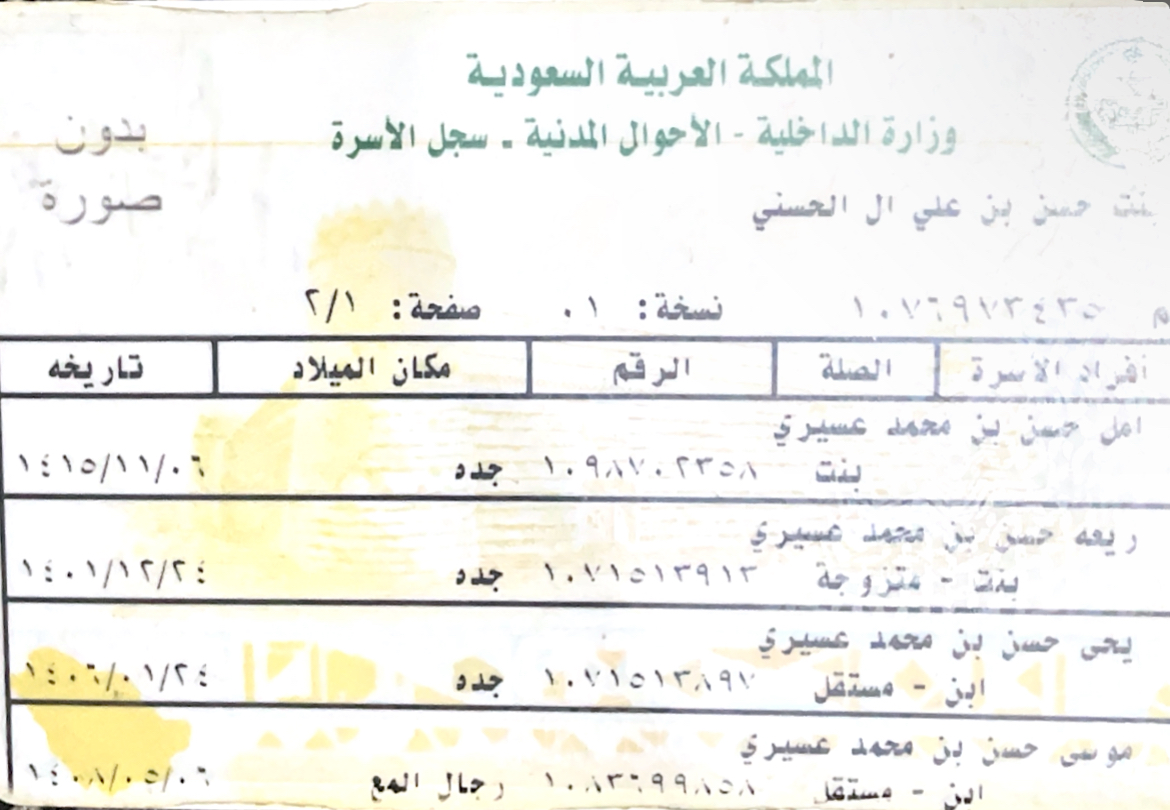 المملكة العربية السعودية
وزارة الداخلية - الأحوال المدنية ـ سجل الأسرة
بدون
صورة
بنت حسن بن علي ال الحسني
١٠٧٦٩٧٣٤٣٥ نسخة: ٠١ صفحة: ٢/١
أفراد الأسرة الصلة الرقم مكان الميلاد تاريخه
امل حسن بن محمد عسيري
بنت ١٠٩٨٧٠٢٣٥٨ جده ١٤١٥/١١/٠٦
ريعه حسن بن محمد عسيري
بنت - متزوجة ١٠٧١٥١٣٩١٣ جده ١٤٠١/١٢/٢٤
يحى حسن بن محمد عسيري
ابن - مستقل ١٠٧١٥١٣٨٩٧ جده ١٤٠٦/٠١/٢٤
موسى حسن بن محمد عسيري
ابن - مستقل ١٠٨٣٦٩٩٨٥٨ رجال المع ١٤٠٨/٠٥/٠٦